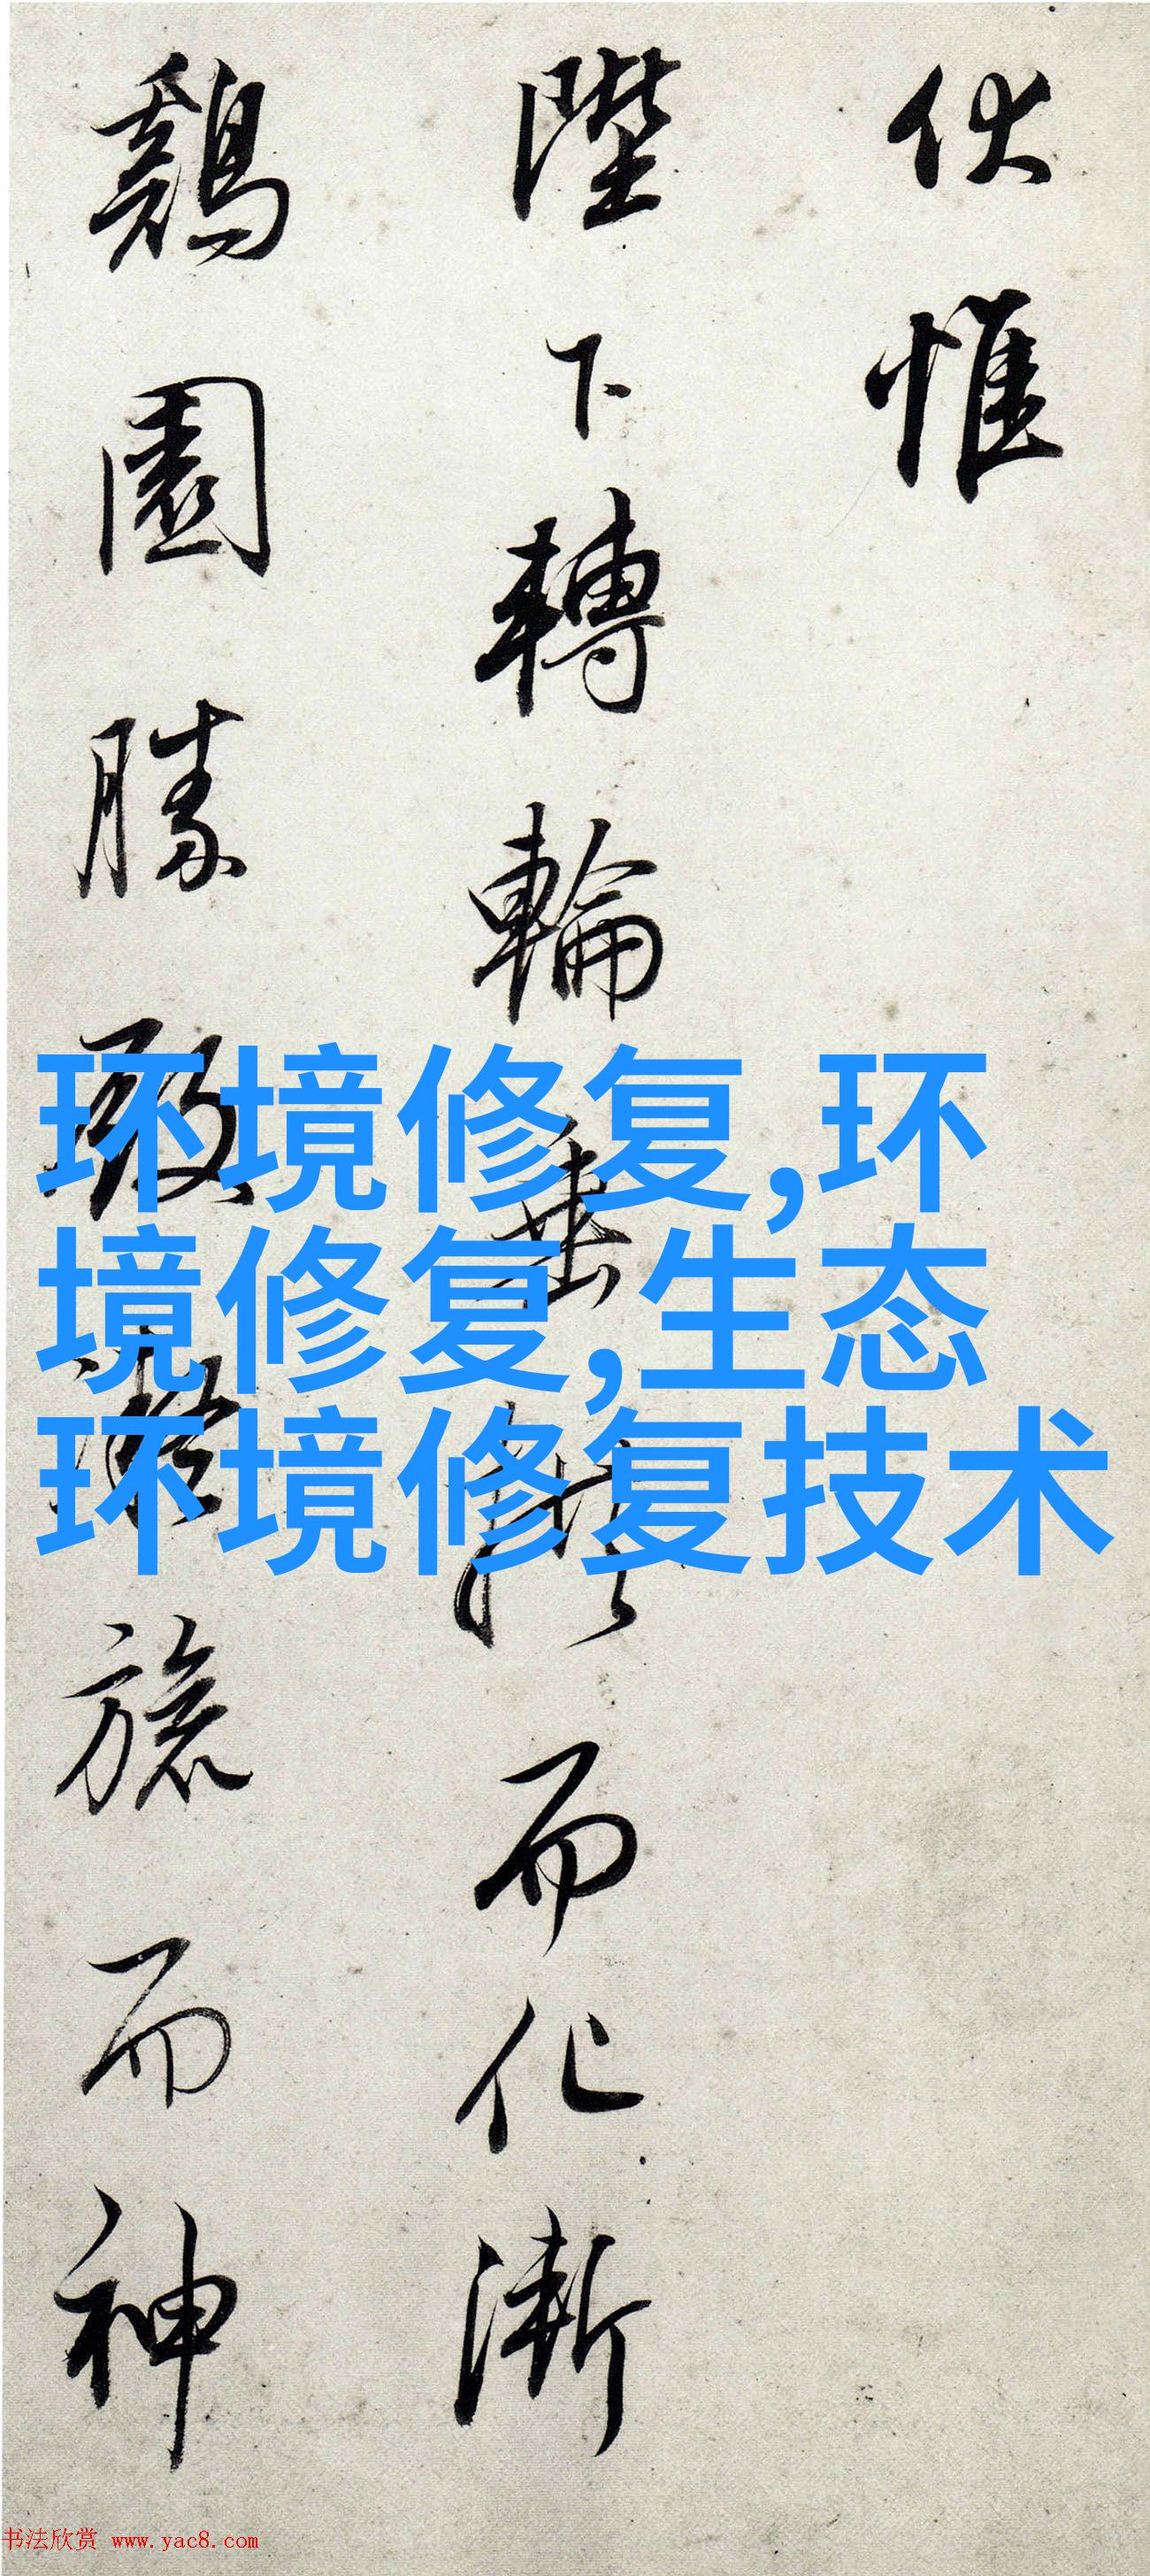 伏惟
陛下轉輪垂拱而化漸
鷄園勝殿凝旒而神
环境修复,环
境修复,生态
环境修复技术
书法欣赏 www.yac8.com